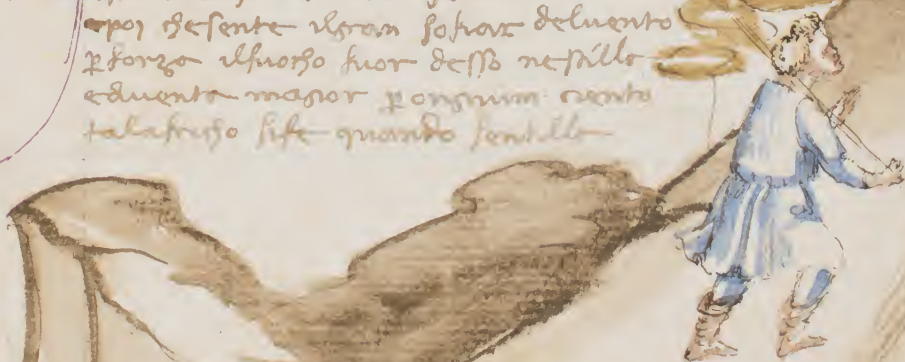 epoj che sente il gran sofiar deluento
ꝑ forza ilfuocho fuor desso nesstille
eduenta magior ꝑ ongnuim cento
talafricho sife quando sentille